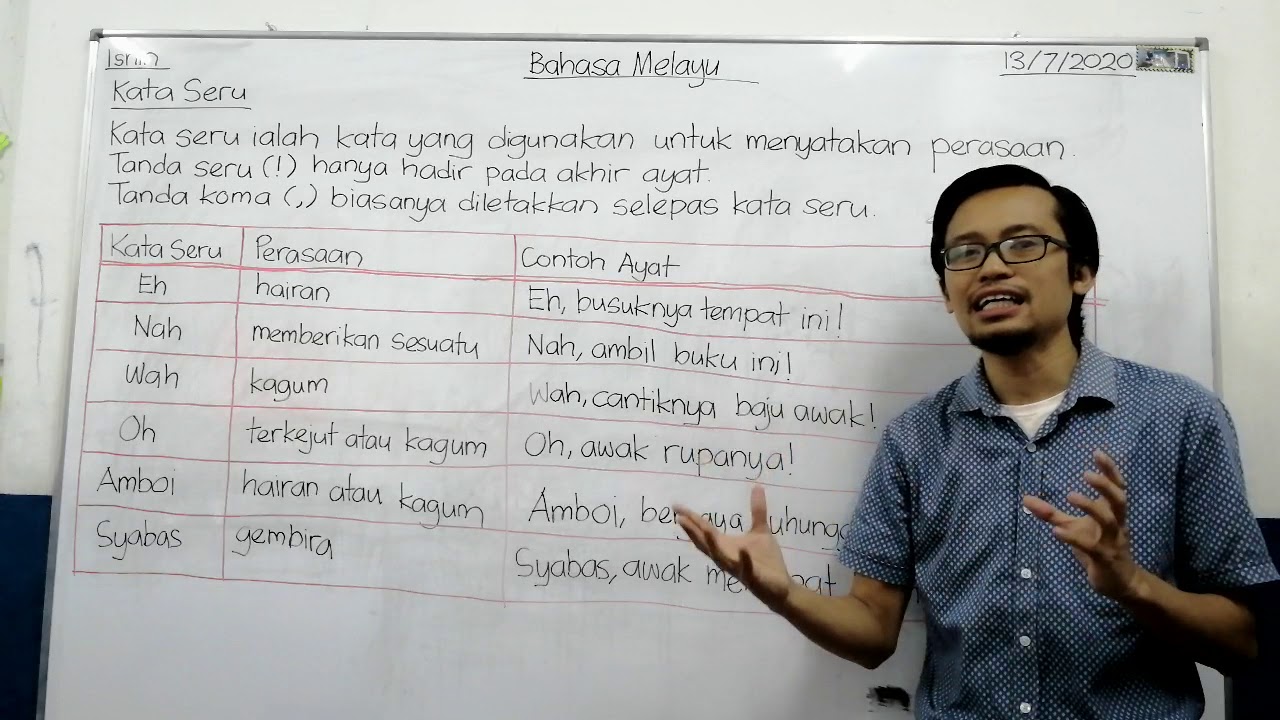 Isnin
Bahasa Melayu
13/7/2020
Kata Seru
Kata seru ialah kata yang digunakan untuk menyatakan perasaan.
Tanda seru (!) hanya hadir pada akhir ayat.
Tanda koma (,) biasanya diletakkan selepas kata seru.
Kata Seru Perasaan Contoh Ayat
Eh hairan Eh, busuknya tempat ini!
Nah memberikan sesuatu Nah, ambil buku ini!
Wah kagum Wah, cantiknya baju awak!
Oh terkejut atau kagum Oh, awak rupanya!
Amboi hairan atau kagum Amboi,
Syabas gembira Syabas, awak